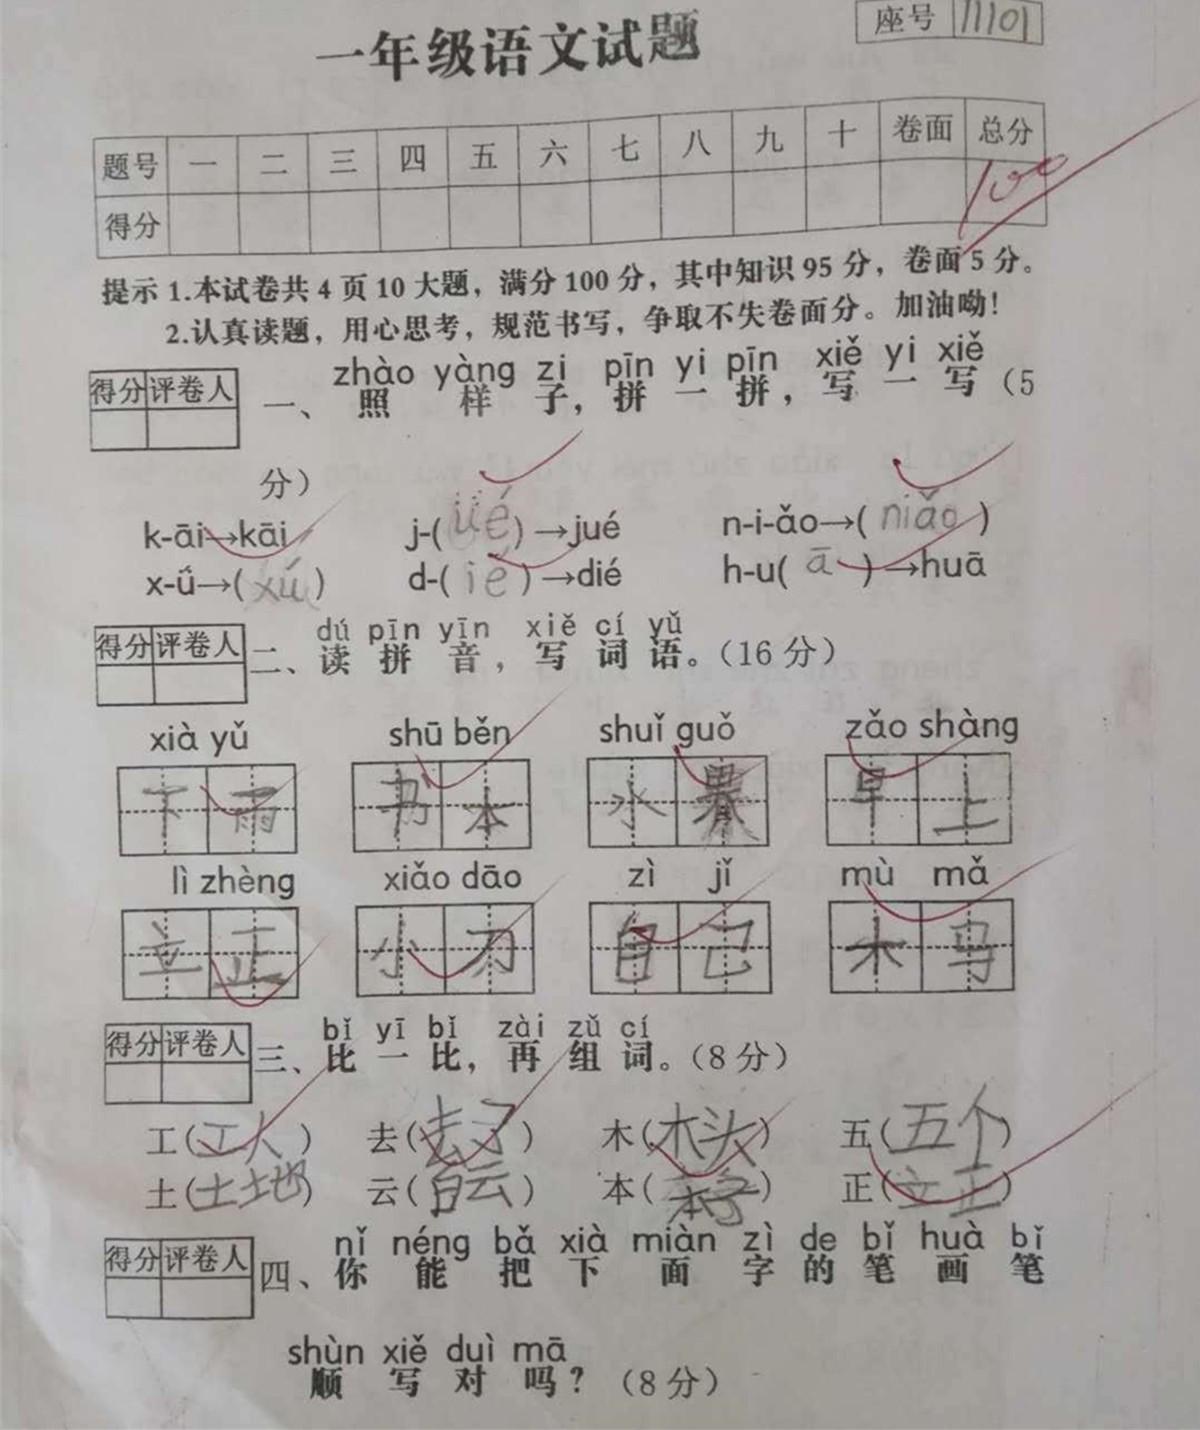 一年级语文试题
座号 11101
题号 一 二 三 四 五 六 七 八 九 十 卷面 总分
得分 100
提示 1.本试卷共4页10大题，满分100分，其中知识95分，卷面5分。
2.认真读题，用心思考，规范书写，争取不失卷面分。加油呦！
得分 评卷人
zhào yàng zi pīn yi pīn xiě yi xiě
一、照样子，拼一拼，写一写（5
分）
k-āi→kāi j-(üé)→jué n-i-ǎo→(niǎo)
x-ǘ→(xú) d-(ié)→dié h-u(ā)→huā
得分 评卷人
dú pīn yīn xiě cí yǔ
二、读拼音，写词语。（16分）
xià yǔ shū běn shuǐ guǒ zǎo shàng
下雨 书本 水果 早上
lì zhèng xiǎo dāo zì jǐ mù mǎ
立正 小刀 自己 木马
得分 评卷人
bǐ yī bǐ zài zǔ cí
三、比一比，再组词。（8分）
工(工人) 去(去了) 木(木头) 五(五个)
土(土地) 云(白云) 本(本子) 正(立正)
得分 评卷人
nǐ néng bǎ xià miàn zì de bǐ huà bǐ
四、你能把下面字的笔画笔
shùn xiě duì mā
顺写对吗？（8分）